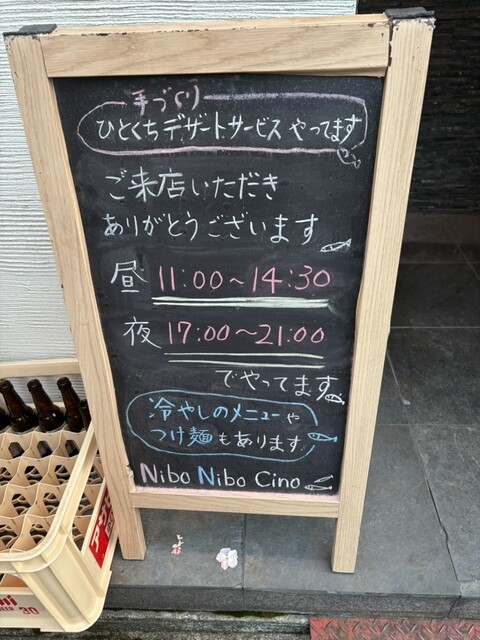 手づくり
ひとくちデザートサービスやってます
ご来店いただき
ありがとうございます
昼 11:00～14:30
夜 17:00～21:00
でやってます
冷やしのメニューや
つけ麺もあります
Nibo Nibo Cino
30